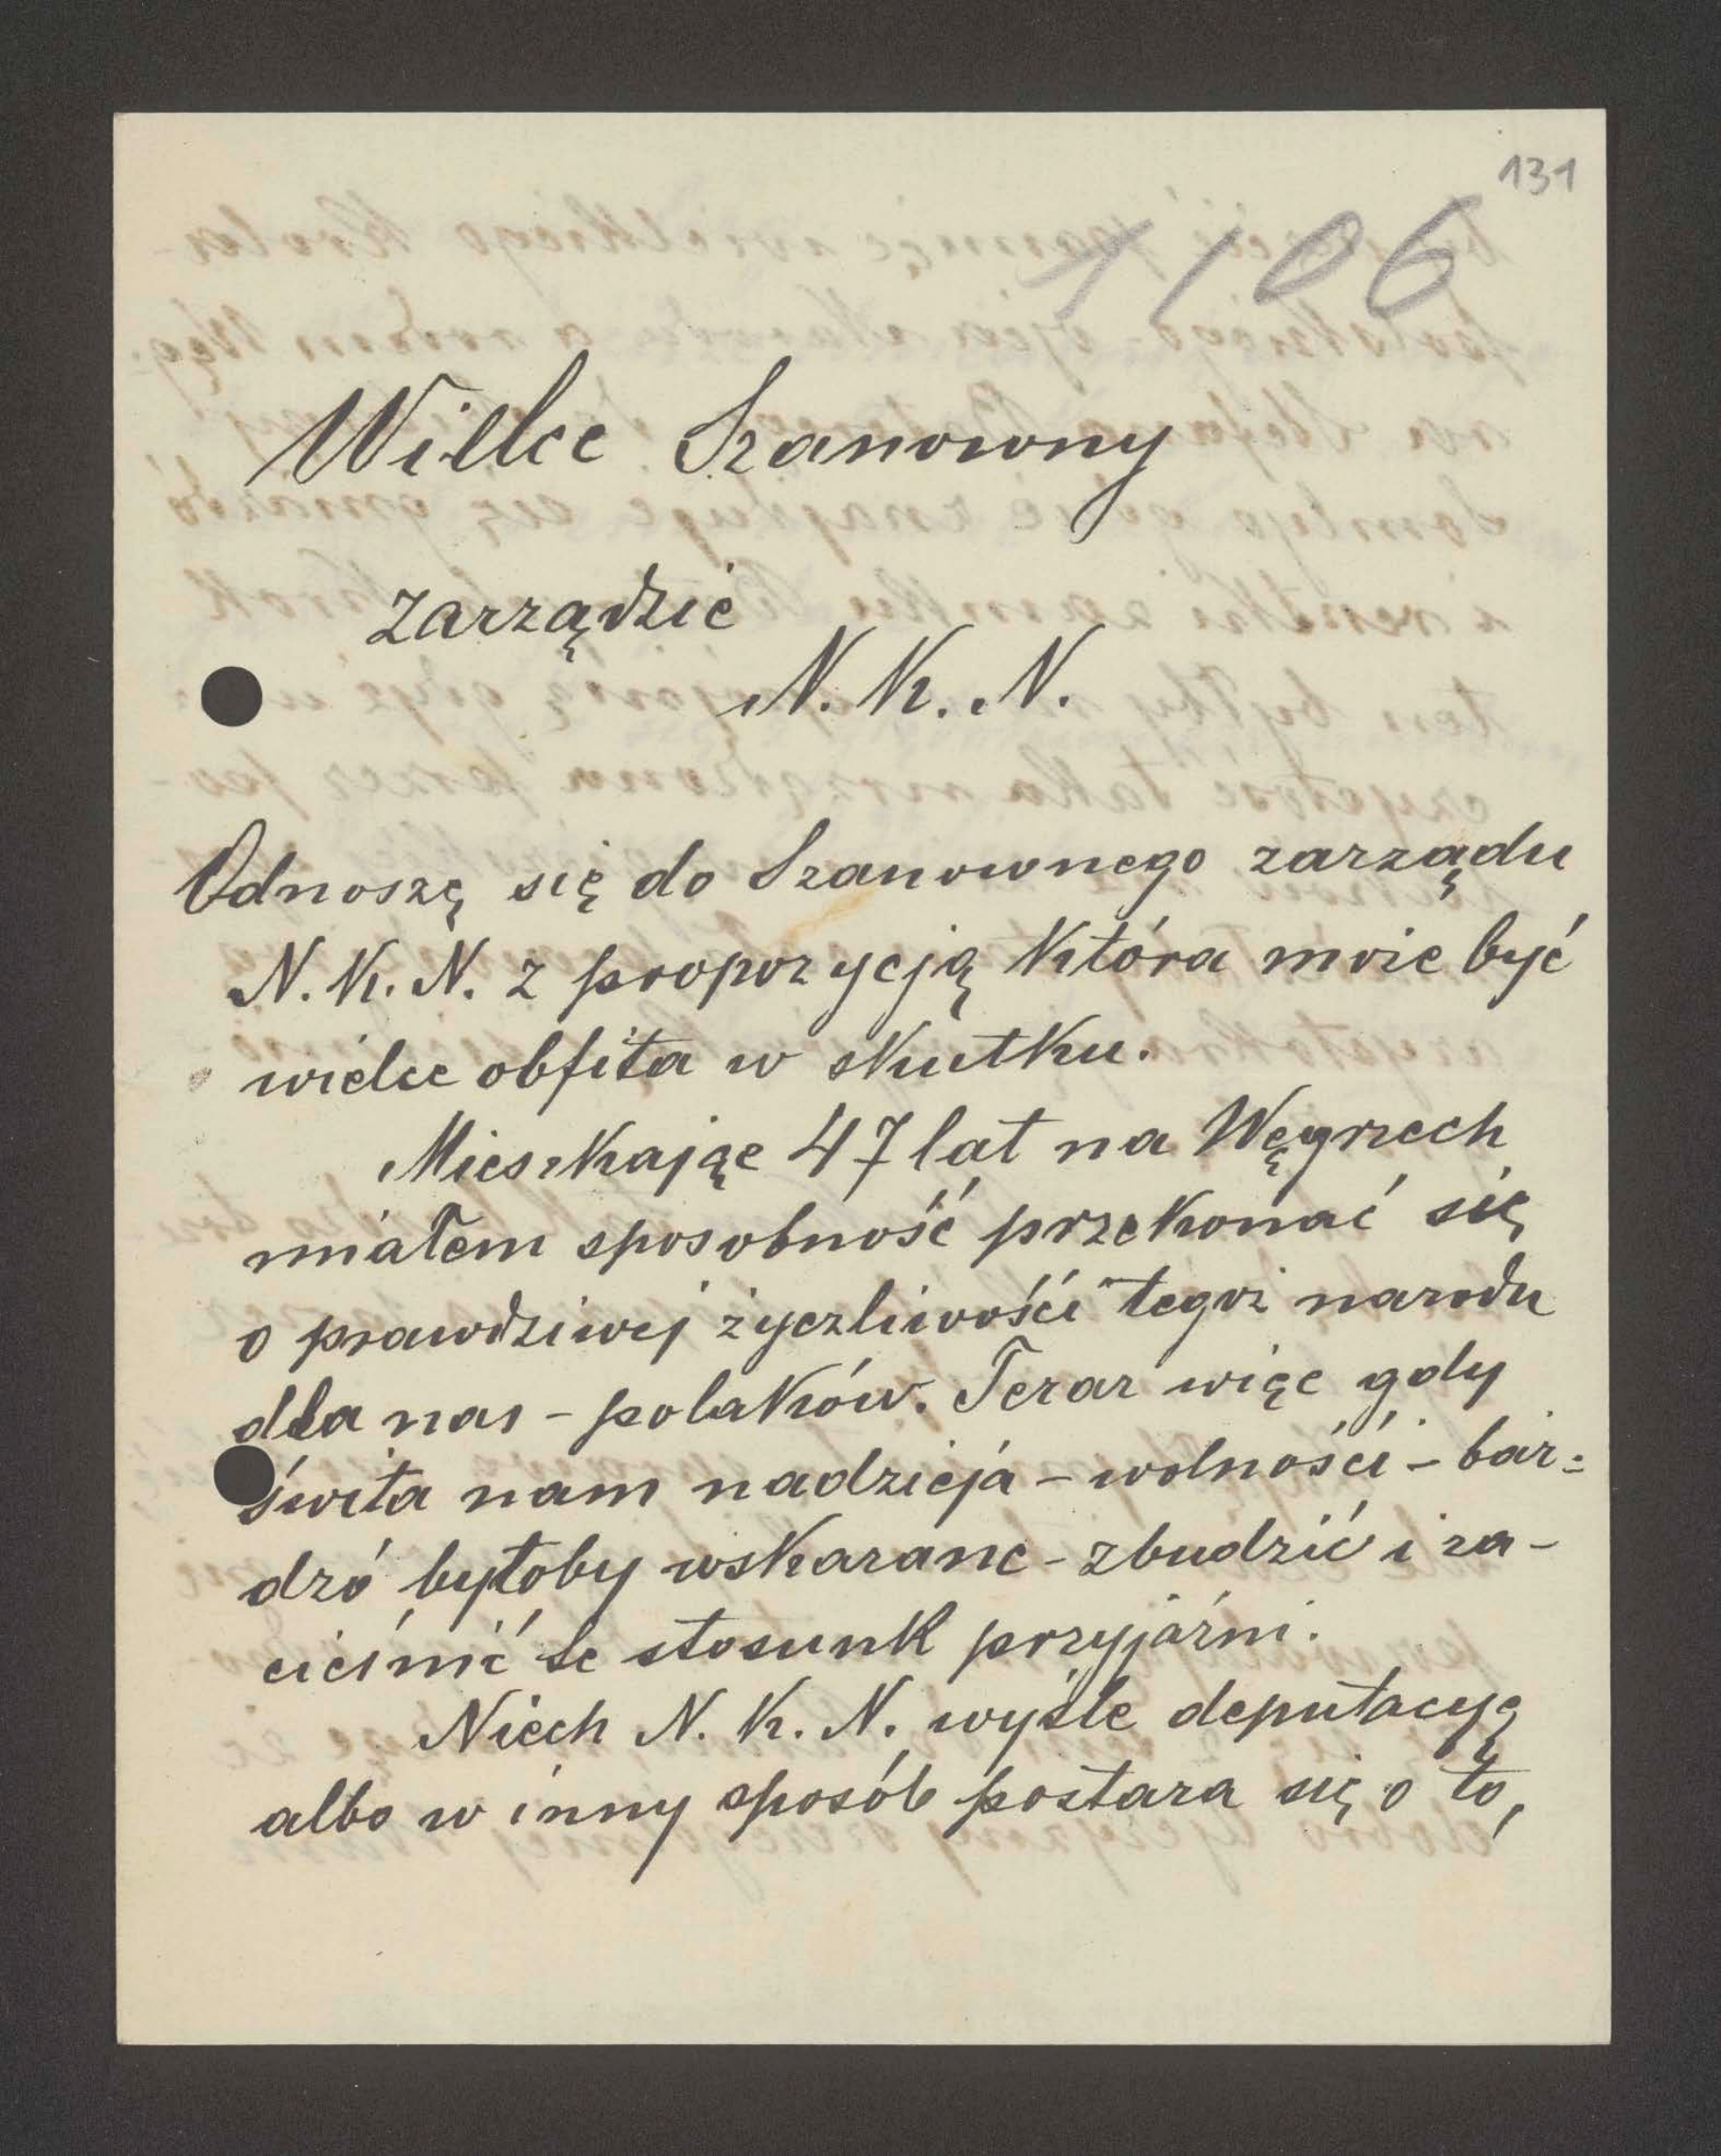 131
1106
Wielce Szanowny
zarządzie
N. K. N.
Odnoszę się do Szanownego zarządu
N. K. N. z propozycją która może być
wielce obfita w skutku.
Mieszkając 47 lat na Węgrzech
miałem sposobność przekonać się
o prawdziwej życzliwości tegoż narodu
dla nas - polaków. Teraz więc gdy
świta nam nadzieja - wolności - bar=
dzo byłoby wskazane - zbudzić i za-
cieśnić te stosunk przyjaźni.
Niech N. K. N. wyśle deputacyę
albo w inny sposób postara się o to,